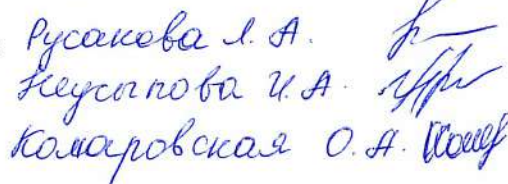 Русакова Л. А.
Неусыпова И. А.
Комаровская О. А.